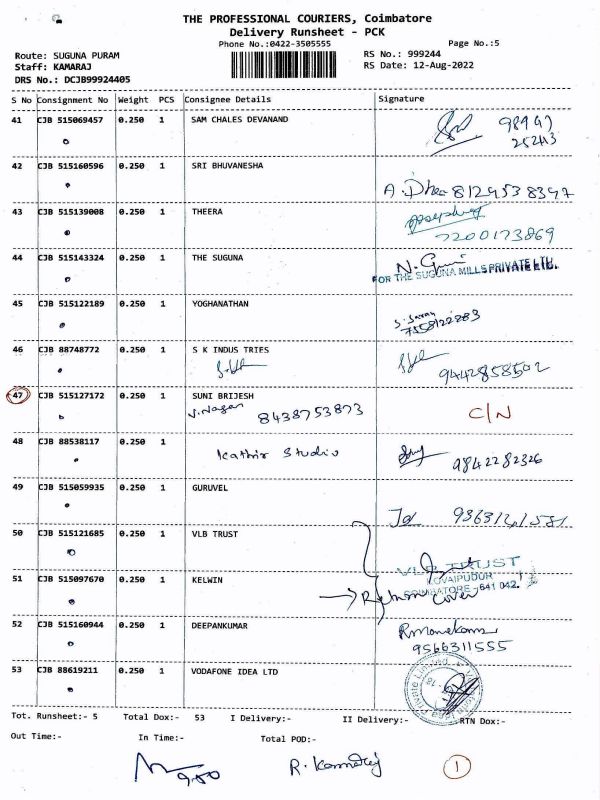 THE PROFESSIONAL COURIERS, Coimbatore
Delivery Runsheet - PCK
Phone No.:0422-3505555 Page No.:5
Route: SUGUNA PURAM RS No.: 999244
Staff: KAMARAJ RS Date: 12-Aug-2022
DRS No.: DCJB99924405
S No Consignment No Weight PCS Consignee Details Signature
41 CJB 515069457 0.250 1 SAM CHALES DEVANAND
42 CJB 515160596 0.250 1 SRI BHUVANESHA
8129538397
43 CJB 515139008 0.250 1 THEERA
7200173869
44 CJB 515143324 0.250 1 THE SUGUNA
FOR THE SUGUNA MILLS PRIVATE LTD.
45 CJB 515122189 0.250 1 YOGHANATHAN
7558122283
46 CJB 88748772 0.250 1 S K INDUS TRIES
9442858502
47 CJB 515127172 0.250 1 SUNI BRIJESH
8438753873 C/N
48 CJB 88538117 0.250 1 Kathir Studio
9842282326
49 CJB 515059935 0.250 1 GURUVEL
50 CJB 515121685 0.250 1 VLB TRUST
VLB TRUST
KOVAIPUDUR
COIMBATORE - 641 042.
51 CJB 515097670 0.250 1 KELWIN
Cover
52 CJB 515160944 0.250 1 DEEPANKUMAR
9566311555
53 CJB 88619211 0.250 1 VODAFONE IDEA LTD
Tot. Runsheet:- 5 Total Dox:- 53 I Delivery:- II Delivery:- RTN Dox:-
Out Time:- In Time:- Total POD:-
R. Kamaraj 1